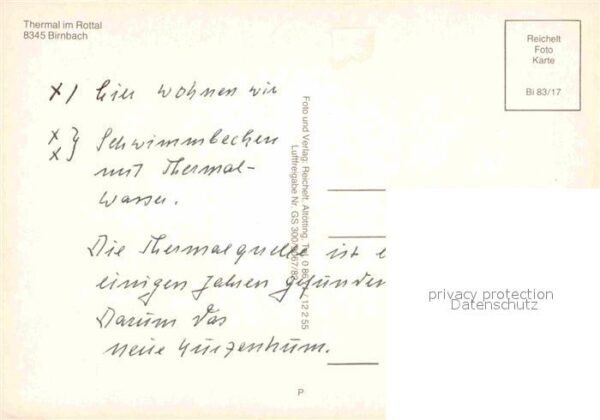 Thermal im Rottal
8345 Birnbach
Reichelt
Foto
Karte
Bi 83/17
x) hier wohnen wir
x
x } Schwimmbecken
mit Thermal-
wasser.
Die Thermalquelle ist
einigen Jahren gefunden
Darum das
neue Kurzentrum.
Foto und Verlag: Reichelt, Altötting, Tel. 0 86 / 12 2 55
Luftfreigabe Nr. GS 300
P
privacy protection
Datenschutz